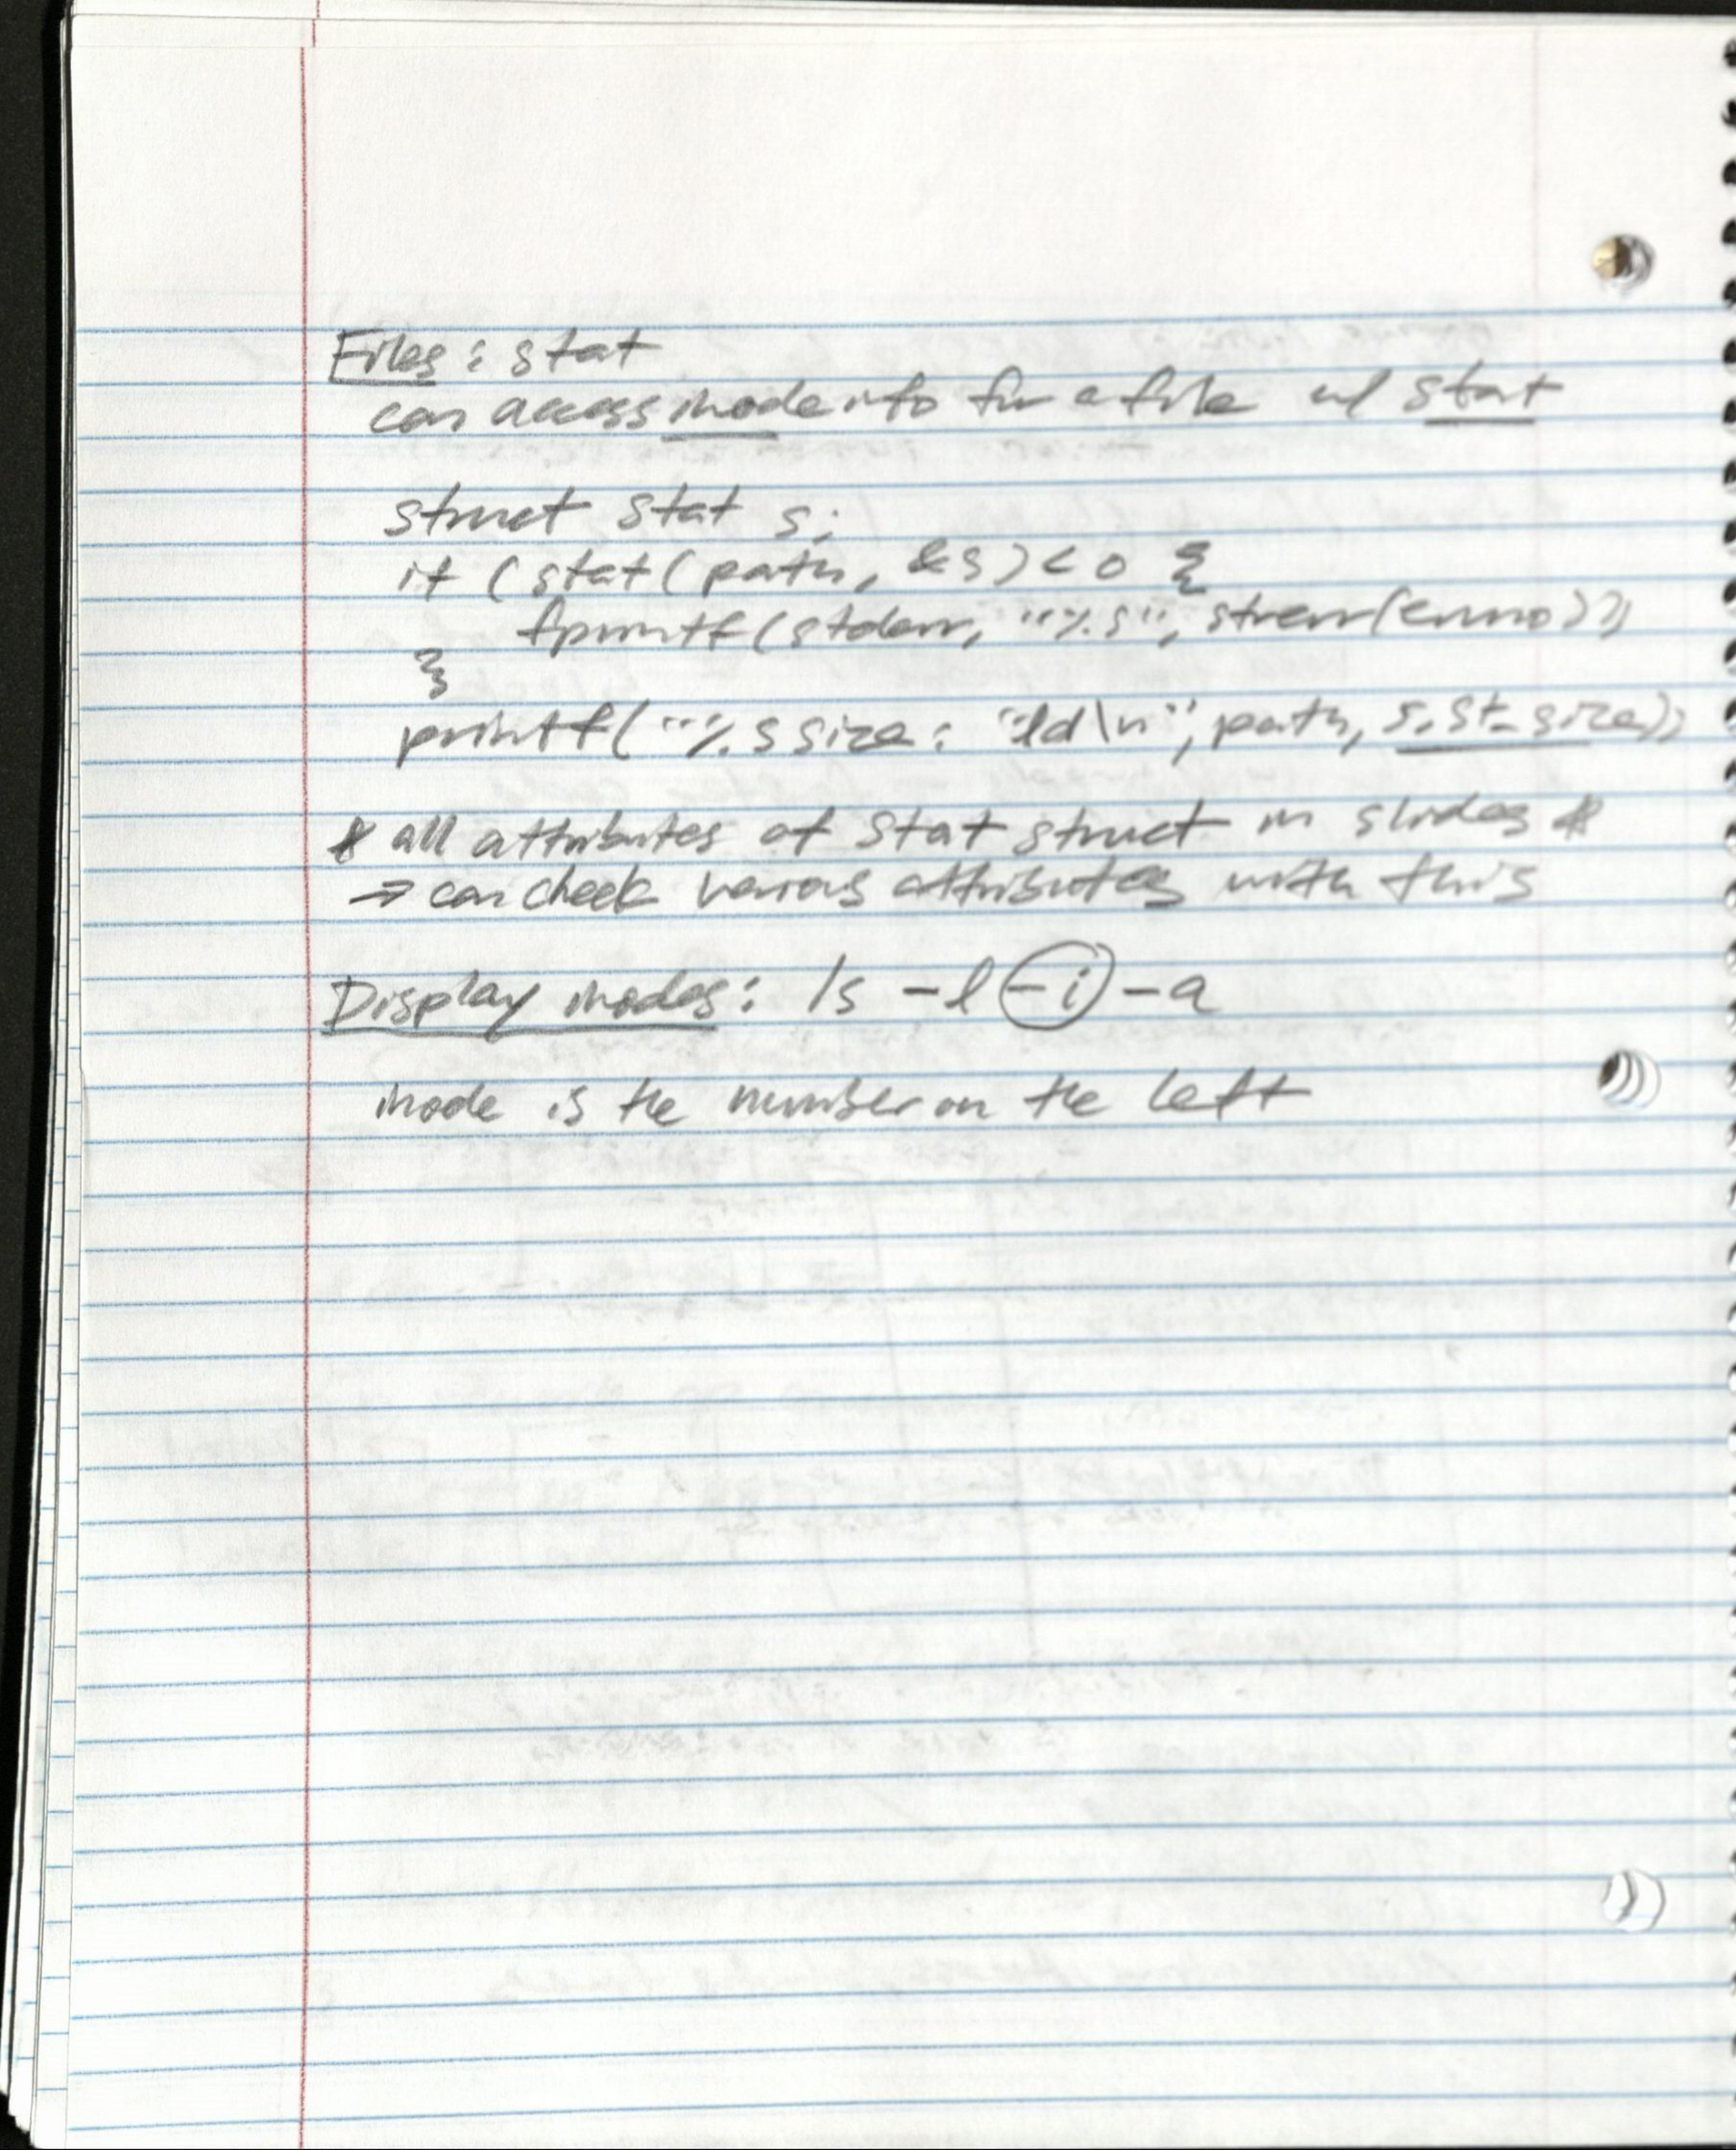 Files: stat
can access inode info for a file w/ stat
struct stat s;
if (stat(path, &s) < 0 {
fprintf(stderr, "%s", strerr(errno));
}
printf("%s size: %ld\n", path, s.st_size);
* all attributes of stat struct in slides *
⇒ can check various attributes with this
Display inodes: ls -l -i -a
inode is the number on the left